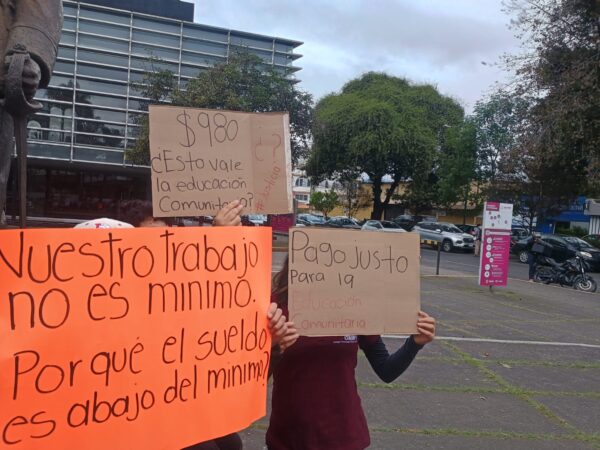 $980
¿Esto vale
la educación
Comunitaria?
¿?
Nuestro trabajo
no es minimo.
Porqué el sueldo
es abajo del minimo?
Pago Justo
Para la
Educación
Comunitaria